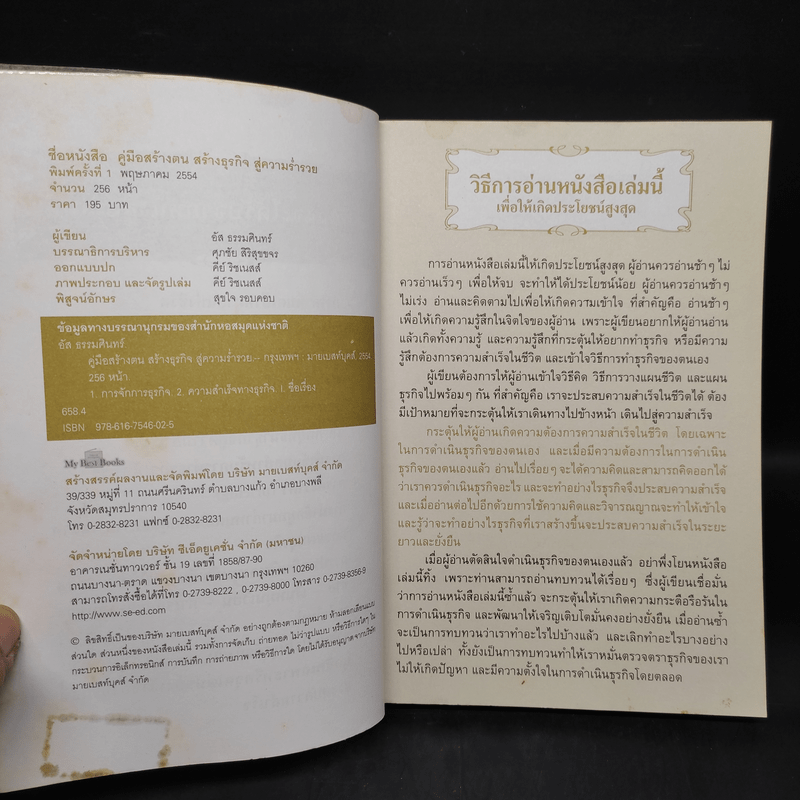 ชื่อหนังสือ คู่มือสร้างตน สร้างธุรกิจ สู่ความร่ำรวย
พิมพ์ครั้งที่ 1 พฤษภาคม 2554
จำนวน 256 หน้า
ราคา 195 บาท
ผู้เขียน อัส ธรรมศินทร์
บรรณาธิการบริหาร ศุภชัย สิริสุขขจร
ออกแบบปก คีย์ ริชเนสส์
ภาพประกอบ และจัดรูปเล่ม คีย์ ริชเนสส์
พิสูจน์อักษร สุขใจ รอบคอบ
ข้อมูลทางบรรณานุกรมของสำนักหอสมุดแห่งชาติ
อัส ธรรมศินทร์.
คู่มือสร้างตน สร้างธุรกิจ สู่ความร่ำรวย.-- กรุงเทพฯ : มายเบสท์บุคส์, 2554.
256 หน้า
1. การจักการธุรกิจ. 2. ความสำเร็จทางธุรกิจ. I. ชื่อเรื่อง.
658.4
ISBN 978-616-7546-02-5
My Best Books
สร้างสรรค์ผลงานและจัดพิมพ์โดย บริษัท มายเบสท์บุคส์ จำกัด
39/339 หมู่ที่ 11 ถนนศรีนครินทร์ ตำบลบางแก้ว อำเภอบางพลี
จังหวัดสมุทรปราการ 10540
โทร 0-2832-8231 แฟกซ์ 0-2832-8231
จัดจำหน่ายโดย บริษัท ซีเอ็ดยูเคชั่น จำกัด (มหาชน)
อาคารเนชั่นทาวเวอร์ ชั้น 19 เลขที่ 1858/87-90
ถนนบางนา-ตราด แขวงบางนา เขตบางนา กรุงเทพฯ 10260
สามารถโทรสั่งซื้อได้ที่โทร 0-2739-8222 , 0-2739-8000 โทรสาร 0-2739-8356-9
http://www.se-ed.com
© ลิขสิทธิ์เป็นของบริษัท มายเบสท์บุคส์ จำกัด อย่างถูกต้องตามกฎหมาย ห้ามลอกเลียนแบบ
ส่วนใด ส่วนหนึ่งของหนังสือเล่มนี้ รวมทั้งการจัดเก็บ ถ่ายทอด ไม่ว่ารูปแบบ หรือวิธีการใดๆ ใน
กระบวนการอิเล็กทรอนิกส์ การบันทึก การถ่ายภาพ หรือวิธีการใด โดยไม่ได้รับอนุญาตจากบริษัท
มายเบสท์บุคส์ จำกัด
วิธีการอ่านหนังสือเล่มนี้
เพื่อให้เกิดประโยชน์สูงสุด
การอ่านหนังสือเล่มนี้ให้เกิดประโยชน์สูงสุด ผู้อ่านควรอ่านช้าๆ ไม่
ควรอ่านเร็วๆ เพื่อให้จบ จะทำให้ได้ประโยชน์น้อย ผู้อ่านควรอ่านช้าๆ
ไม่เร่ง อ่านและคิดตามไปเพื่อให้เกิดความเข้าใจ ที่สำคัญคือ อ่านช้าๆ
เพื่อให้เกิดความรู้สึกในจิตใจของผู้อ่าน เพราะผู้เขียนอยากให้ผู้อ่านอ่าน
แล้วเกิดทั้งความรู้ และความรู้สึกที่กระตุ้นให้อยากทำธุรกิจ หรือมีความ
รู้สึกต้องการความสำเร็จในชีวิต และเข้าใจวิธีการทำธุรกิจของตนเอง
ผู้เขียนต้องการให้ผู้อ่านเข้าใจวิธีคิด วิธีการวางแผนชีวิต และแผน
ธุรกิจไปพร้อมๆ กัน ที่สำคัญคือ เราจะประสบความสำเร็จในชีวิตได้ ต้อง
มีเป้าหมายที่จะกระตุ้นให้เราเดินทางไปข้างหน้า เดินไปสู่ความสำเร็จ
กระตุ้นให้ผู้อ่านเกิดความต้องการความสำเร็จในชีวิต โดยเฉพาะ
ในการดำเนินธุรกิจของตนเอง และเมื่อมีความต้องการในการดำเนิน
ธุรกิจของตนเองแล้ว อ่านไปเรื่อยๆ จะได้ความคิดและสามารถคิดออกได้
ว่าเราควรดำเนินธุรกิจอะไร และจะทำอย่างไรธุรกิจจึงประสบความสำเร็จ
และเมื่ออ่านต่อไปอีกด้วยการใช้ความคิดและวิจารณญาณจะทำให้เข้าใจ
และรู้ว่าจะทำอย่างไรธุรกิจที่เราสร้างขึ้นจะประสบความสำเร็จในระยะ
ยาวและยั่งยืน
เมื่อผู้อ่านตัดสินใจดำเนินธุรกิจของตนเองแล้ว อย่าพึ่งโยนหนังสือ
เล่มนี้ทิ้ง เพราะท่านสามารถอ่านทบทวนได้เรื่อยๆ ซึ่งผู้เขียนเชื่อมั่น
ว่าการอ่านหนังสือเล่มนี้ซ้ำแล้ว จะกระตุ้นให้เราเกิดความกระตือรือร้นใน
การดำเนินธุรกิจ และพัฒนาให้เจริญเติบโตมั่นคงอย่างยั่งยืน เมื่ออ่านซ้ำ
จะเป็นการทบทวนว่าเราทำอะไรไปบ้างแล้ว และเลิกทำอะไรบางอย่าง
ไปหรือเปล่า ทั้งยังเป็นการทบทวนทำให้เราหมั่นตรวจตราธุรกิจของเรา
ไม่ให้เกิดปัญหา และมีความตั้งใจในการดำเนินธุรกิจโดยตลอด